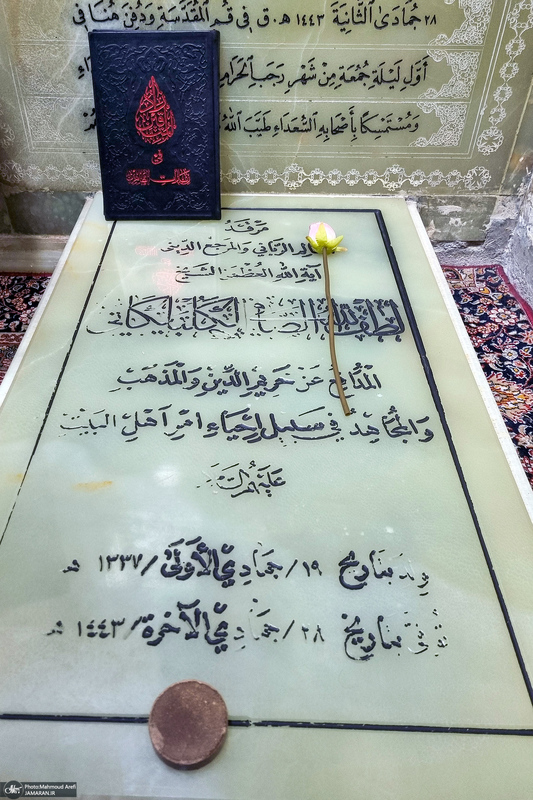 ٢٨ جُمَادَى الثَّانِيَة ١٤٤٣ هـ.ق فِي قُمِ الْمُقَدَّسَةِ وَدُفِنَ هُنَا فِي
أَوَّلِ لَيْلَةِ جُمُعَةٍ مِنْ شَهْرِ رَجَبِ الْحَرَامِ
وَمُسْتَمْسِكًا بِأَصْحَابِهِ الشُّهَدَاءِ طَيَّبَ اللهُ
فی
مَرْقَدُ
الرباني والمرجع الديني
آية الله العظمى الشيخ
لطف الله الصافي الگلپايگاني
المُدافِع عَنْ حَرِيمِ الدِّينِ وَالمَذْهَبِ
وَالمُجَاهِدُ فِي سَبِيلِ إِحْيَاءِ أَمْرِ أَهْلِ البَيْتِ
عَلَيْهِمُ
بتاريخ ١٩/ جمادي الأولى /١٣٣٧ هـ
بتاريخ ٢٨/ جمادي الآخرة /١٤٤٣ هـ
Photo:Mahmoud Arefi
JAMARAN.IR